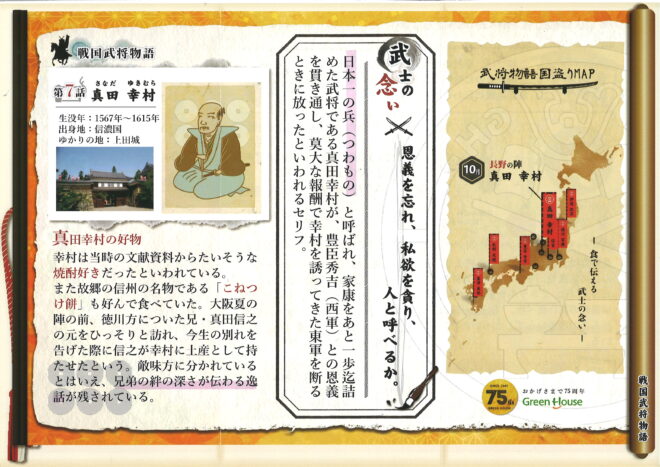 戦国武将物語
第7話
さなだ ゆきむら
真田 幸村
生没年：1567年〜1615年
出身地：信濃国
ゆかりの地：上田城
真田幸村の好物
幸村は当時の文献資料からたいそうな
焼酎好きだったといわれている。
また故郷の信州の名物である「こねつ
け餅」も好んで食べていた。大阪夏の
陣の前、徳川方についた兄・真田信之
の元をひっそりと訪れ、今生の別れを
告げた際に信之が幸村に土産として持
たせたという。敵味方に分かれている
とはいえ、兄弟の絆の深さが伝わる逸
話が残されている。
武士の念い
恩義を忘れ、私欲を貪り、
人と呼べるか。
日本一の兵、（つわもの）と呼ばれ、家康をあと一歩迄詰
めた武将である真田幸村が、豊臣秀吉（西軍）との恩義
を貫き通し、莫大な報酬で幸村を誘ってきた東軍を断る
ときに放ったといわれるセリフ。
武将物語国盗りMAP
10月
長野の陣
真田 幸村
真田 幸村
ー 食で伝える
武士の念い ー
SINCE 1947
75th
GREEN HOUSE
おかげさまで75周年
Green House
戦国武将物語